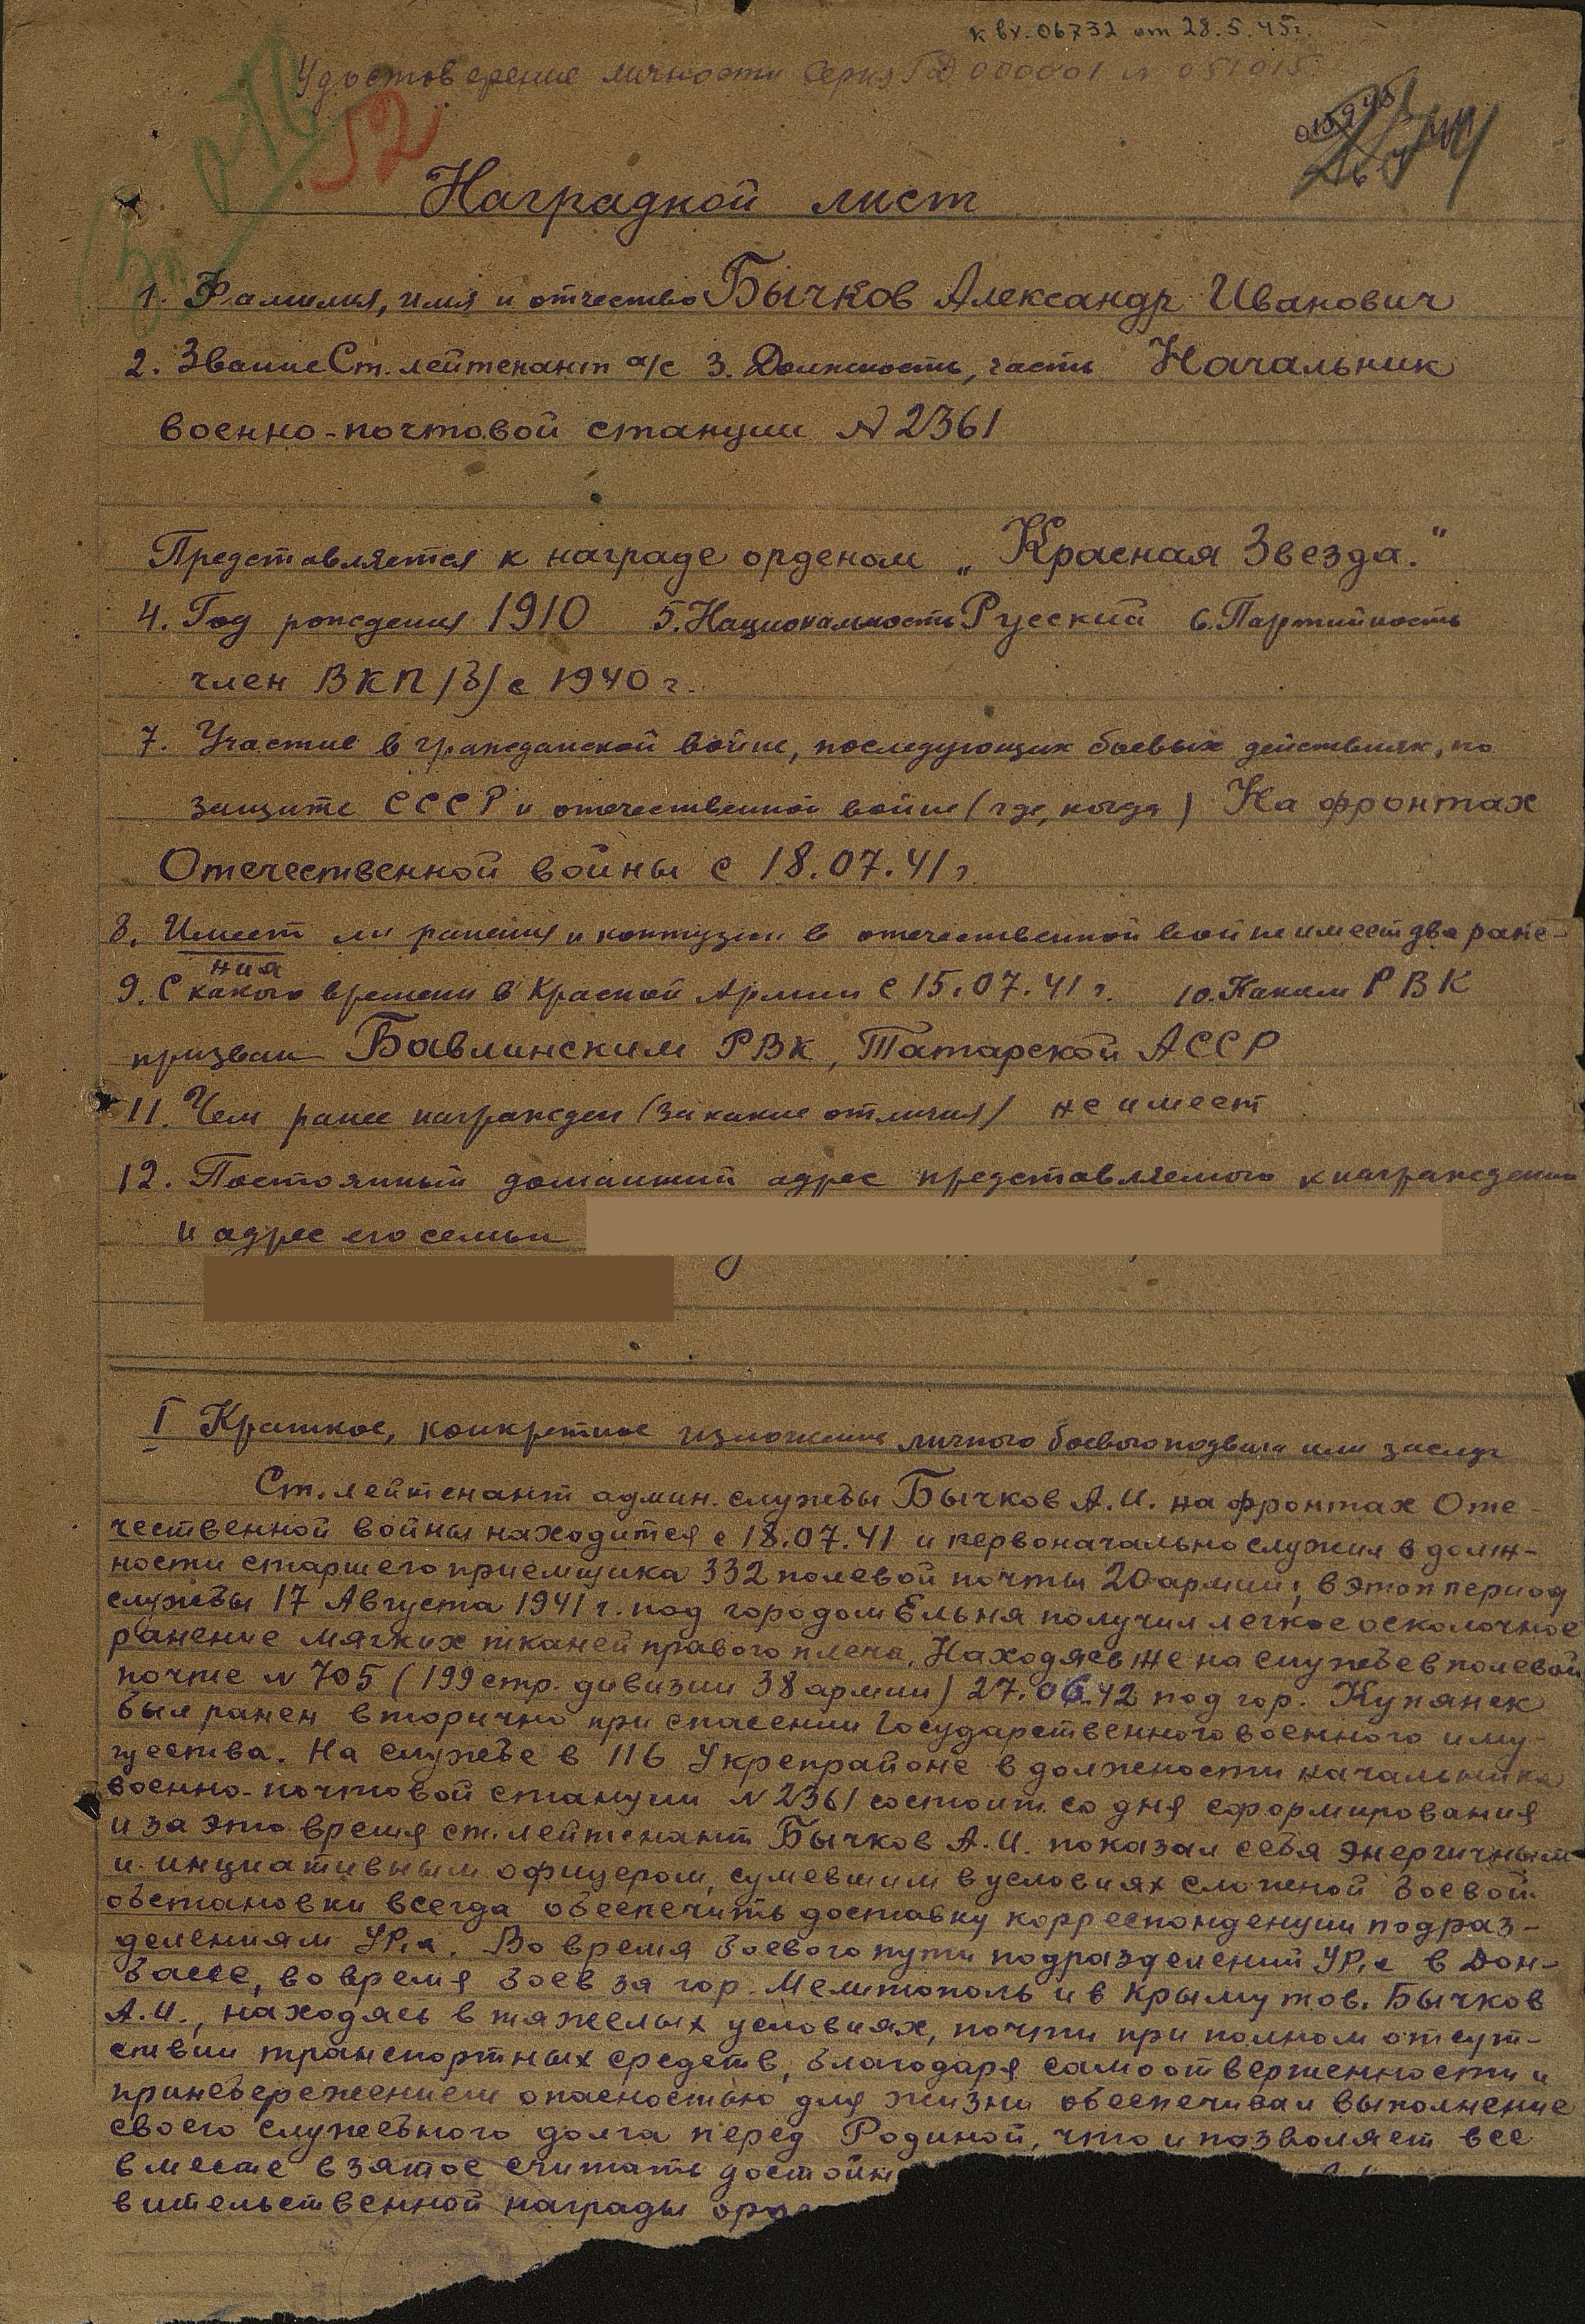 к вх. 06732 от 28.5.45г.
Удостоверение личности Серия ГД 000001 № 051015
52
Наградной лист
1. Фамилия, имя и отчество Бычков Александр Иванович
2. Звание Ст. лейтенант а/с 3. Должность, часть Начальник
военно-почтовой станции N 2361
Представляется к награде орденом „Красная Звезда."
4. Год рождения 1910 5. Национальность Русский 6. Партийность
член ВКП/б/ с 1940 г.
7. Участие в гражданской войне, последующих боевых действиях, по
защите СССР и отечественной войне (где, когда) На фронтах
Отечественной войны с 18.07.41 г.
8. Имеет ли ранения и контузии в отечественной войне имеет два ране-
ния
9. С какого времени в Красной Армии с 15.07.41 г. 10. Каким РВК
призван Бавлинским РВК, Татарской АССР
11. Чем ранее награжден (за какие отличия) не имеет
12. Постоянный домашний адрес представляемого к награждению
и адрес его семьи
I Краткое, конкретное изложение личного боевого подвига или заслуг
Ст. лейтенант админ. службы Бычков А.И. на фронтах Оте-
чественной войны находится с 18.07.41 и первоначально служил в долж-
ности старшего приемщика 332 полевой почты 20 армии, в этот период
службы 17 Августа 1941 г. под городом Ельня получил легкое осколочное
ранение мягких тканей правого плеча. Находясь же на службе в полевой
почте N 705 (199 стр. дивизии 38 армии) 27.06.42 под гор. Купянск
был ранен вторично при спасении Государственного военного иму-
щества. На службе в 116 Укрепрайоне в должности начальника
военно-почтовой станции N 2361 состоит со дня сформирования
и за это время ст. лейтенант Бычков А.И. показал себя энергичным
и инциативным офицером, сумевшим в условиях сложной боевой
обстановки всегда обеспечить доставку корреспонденции подраз-
делениям УР,а. Во время боевого пути подразделений УР,а в Дон-
бассе, во время боев за гор. Мелитополь и в Крыму тов. Бычков
А.И., находясь в тяжелых условиях, почти при полном отсут-
ствии транспортных средств, благодаря самоотверженности и
принебережением опасностью для жизни обеспечивал выполнение
своего служебного долга перед Родиной, что и позволяет все
вместе взятое считать достойн
вительственной награды орд